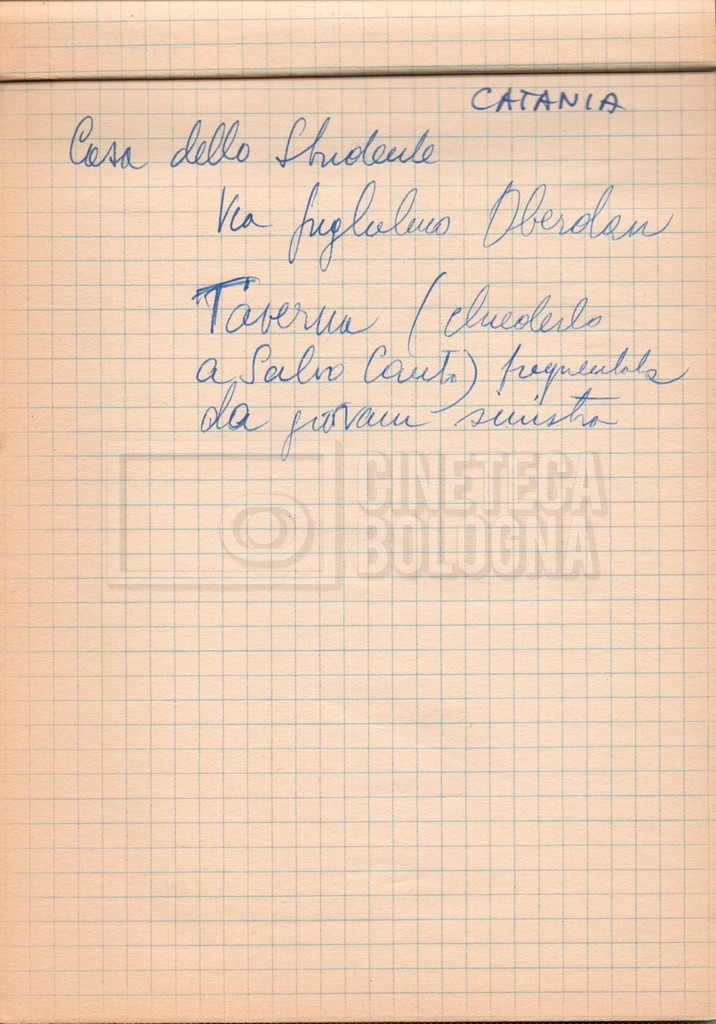 CATANIA
Casa dello Studente
Via Guglielmo Oberdan
Taverna (chiederlo
a Salvo Cantò) frequentata
da giovani sinistra
CINETECA
BOLOGNA